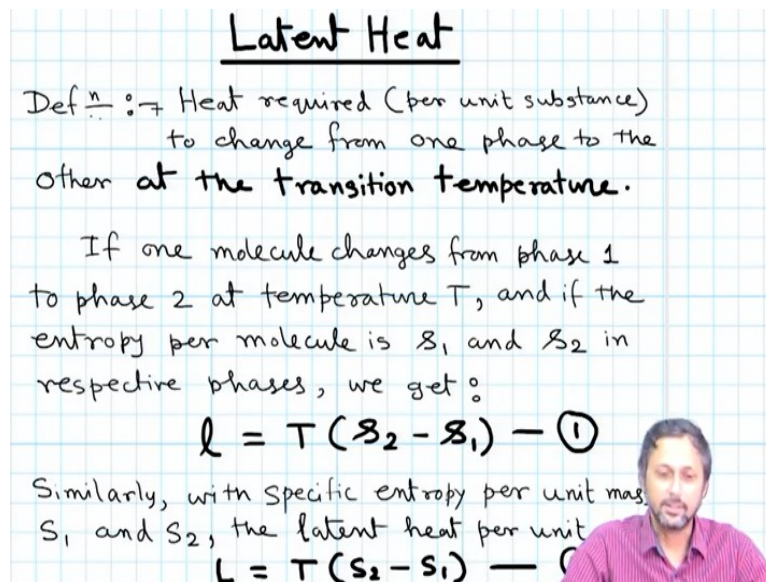 Latent Heat
Defⁿ :→ Heat required (per unit substance)
to change from one phase to the
other at the transition temperature.
If one molecule changes from phase 1
to phase 2 at temperature T, and if the
entropy per molecule is s₁ and s₂ in
respective phases, we get :
l = T(s₂ - s₁) — ①
Similarly, with specific entropy per unit
S₁ and S₂, the latent heat per unit
L = T(S₂ - S₁) —